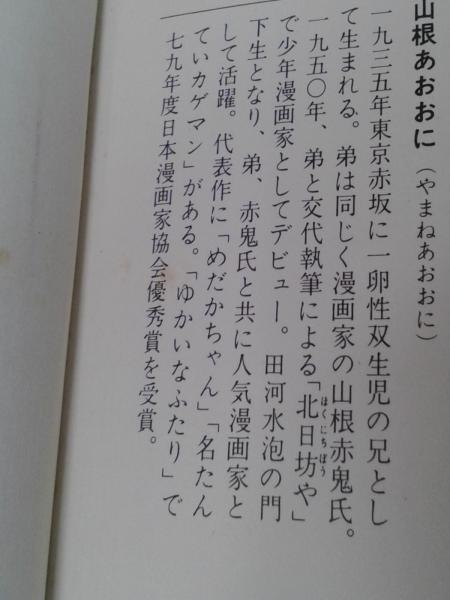 山根あおおに（やまねあおおに）
一九三五年東京赤坂に一卵性双生児の兄とし
て生まれる。弟は同じく漫画家の山根赤鬼氏。
一九五〇年、弟と交代執筆による「北日坊や」
ほくにちぼう
で少年漫画家としてデビュー。田河水泡の門
下生となり、弟、赤鬼氏と共に人気漫画家と
して活躍。代表作に「めだかちゃん」「名たん
ていカゲマン」がある。「ゆかいなふたり」で
七九年度日本漫画家協会優秀賞を受賞。